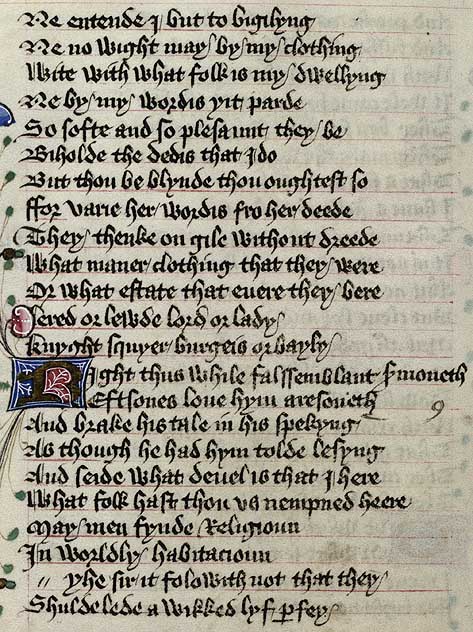 Ne entende I but to bigilyng
Ne no wight may by my clothing
Wite with what folk is my dwellyng
Ne by my wordis yit parde
So softe and so plesaunt they be
Biholde the dedis that I do
But thou be blynde thou oughtest so
ffor varie her wordis fro her deede
They thenke on gile without dreede
What maner clothing that they were
Or what estate that euere they bere
Lered or lewde lord or lady
Knyght squyer burgeis or bayly
Right thus while falssemblant smoneth
Eftsones loue hym aresoneth
9
And brake his tale in his spekyng
As though he had hym tolde lesyng
And seide what deuel is that I here
What folk hast thou us nempned heere
May men fynde Religioun
In worldly habitacioun
" yhe sir it folowith not that they
Shulde lede a wikked lyf pfey